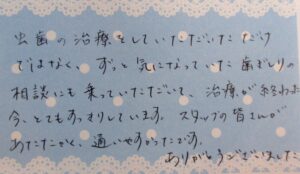 虫歯の治療をしていただいただけ
ではなく、ずっと気になっていた歯ぎしりの
相談にも乗っていただいて、治療が終わった
今、とてもすっきりしています。スタッフの皆さんが
あたたかく、通いやすかったです。
ありがとうございました